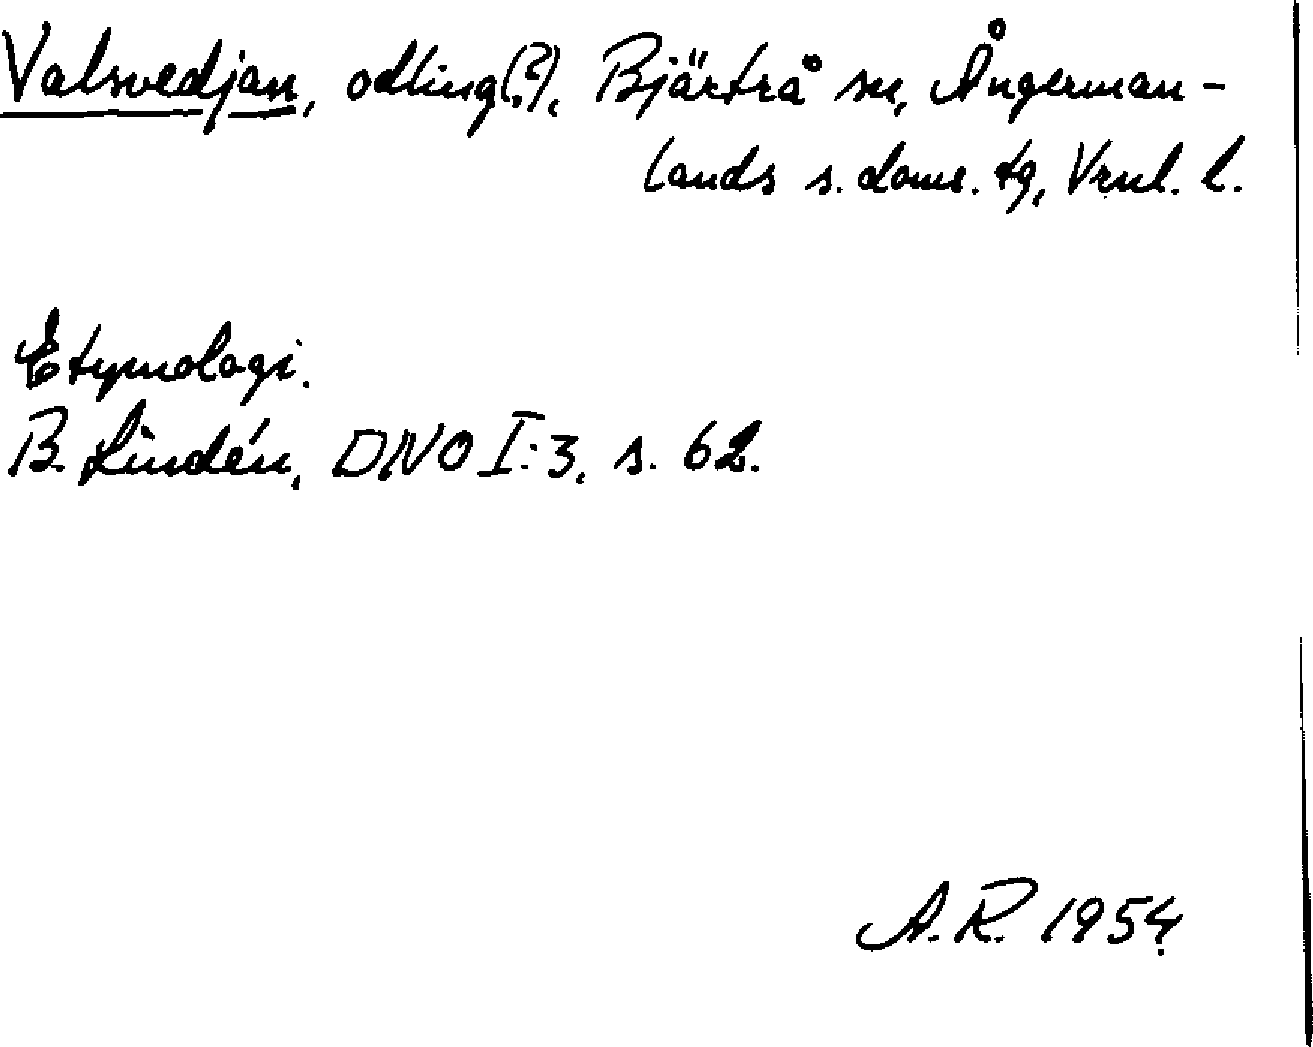 Valsvedjan, odling(?), Bjärtrå sn, Ångerman-
lands s. doms. tg, Vrnl. l.
Etymologi.
B. Lindén, DNO I:3, s. 62.
A.R. 1954.